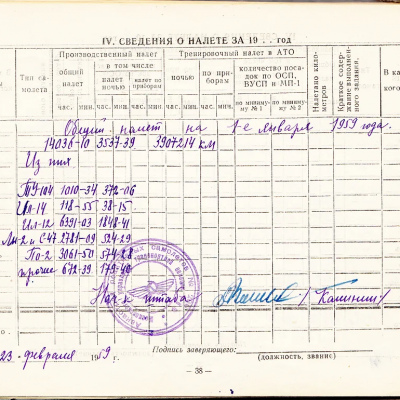 IV. СВЕДЕНИЯ О НАЛЕТЕ ЗА 19 . . год
Тип самолета
Производственный налет
Тренировочный налет в АТО
Налетано километров
Краткое содержание выполненного задания.
В ка
кого
общий налет
в том числе
налет ночью
налет по приборам
ночью
по приборам
количество посадок по ОСП, ВУСП и МП-1
по минимуму № 1
по минимуму № 2
час. мин. час. мин. час. мин. час. мин. час. мин.
Общий налет на 1-е января 1959 года.
14036-10 3537-39 3907214 км
Из них
ТУ-104 1010-34 372-06
Ил-14 118-55 38-15
Ил-12 6391-03 1848-41
Ли-2 и С-47 2781-09 524-29
По-2 3061-50 574-28
прочие 672-39 179-40
Нач-к штаба / Калинин /
23 февраля 1959 г.
Подпись заверяющего:
(должность, звание)
— 38 —